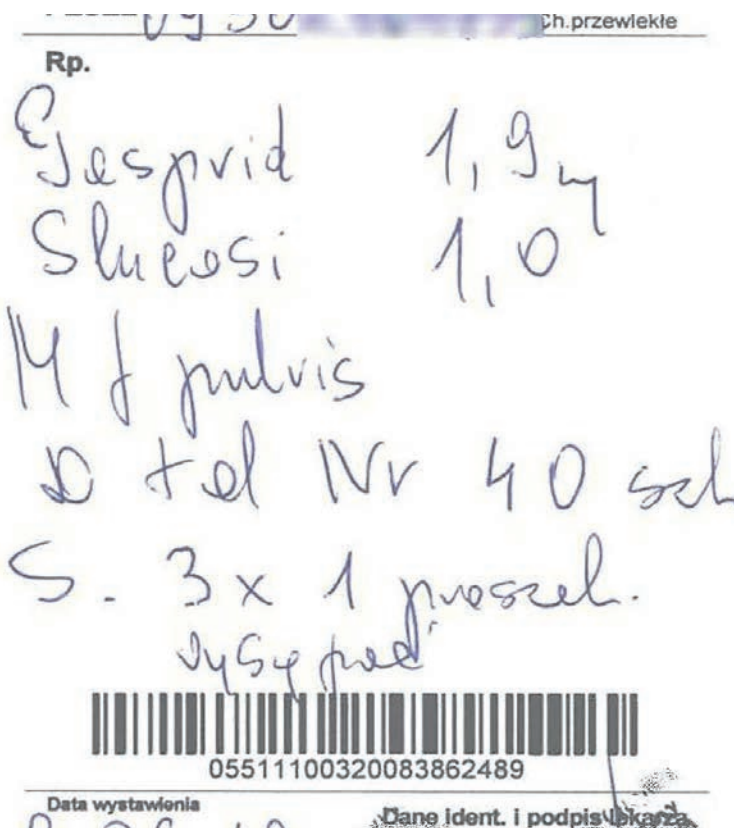 Ch.przewlekłe
Rp.
Gasprid 1,9 mg
Glucosi 1,0
M f pulvis
D t d Nr 40 szt
S. 3 x 1 proszek.
wysypać
05511100320083862489
Data wystawienia
Dane ident. i podpis lekarza